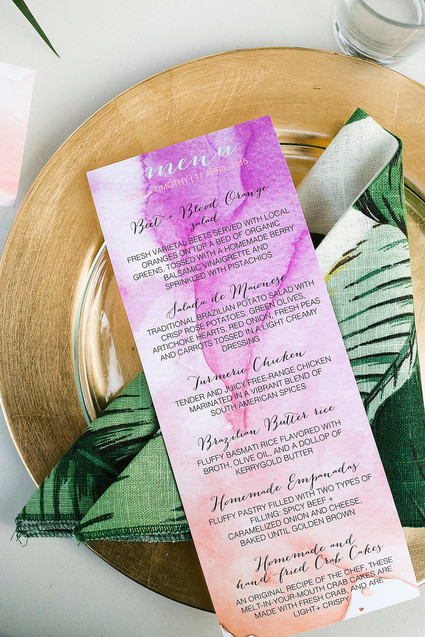 menu
TIMOTHY | 11 APRIL 2015
Beet + Blood Orange
salad
FRESH VARIETAL BEETS SERVED WITH LOCAL
ORANGES ON TOP A BED OF ORGANIC
GREENS, TOSSED WITH A HOMEMADE BERRY
BALSAMIC VINAIGRETTE AND
SPRINKLED WITH PISTACHIOS
Salada de Maionese
TRADITIONAL BRAZILIAN POTATO SALAD WITH
CRISP ROSE POTATOES, GREEN OLIVES,
ARTICHOKE HEARTS, RED ONION, FRESH PEAS
AND CARROTS TOSSED IN A LIGHT CREAMY
DRESSING
Turmeric Chicken
TENDER AND JUICY FREE-RANGE CHICKEN
MARINATED IN A VIBRANT BLEND OF
SOUTH AMERICAN SPICES
Brazilian Butter rice
FLUFFY BASMATI RICE FLAVORED WITH
BROTH, OLIVE OIL, AND A DOLLOP OF
KERRYGOLD BUTTER
Homemade Empanadas
FLUFFY PASTRY FILLED WITH TWO TYPES OF
FILLING. SPICY BEEF +
CARAMELIZED ONION AND CHEESE,
BAKED UNTIL GOLDEN BROWN
Homemade and
hand-fried Crab Cakes
AN ORIGINAL RECIPE OF THE CHEF, THESE
MELT-IN-YOUR-MOUTH CRAB CAKES ARE
MADE WITH FRESH CRAB, AND ARE
LIGHT+ CRISPY